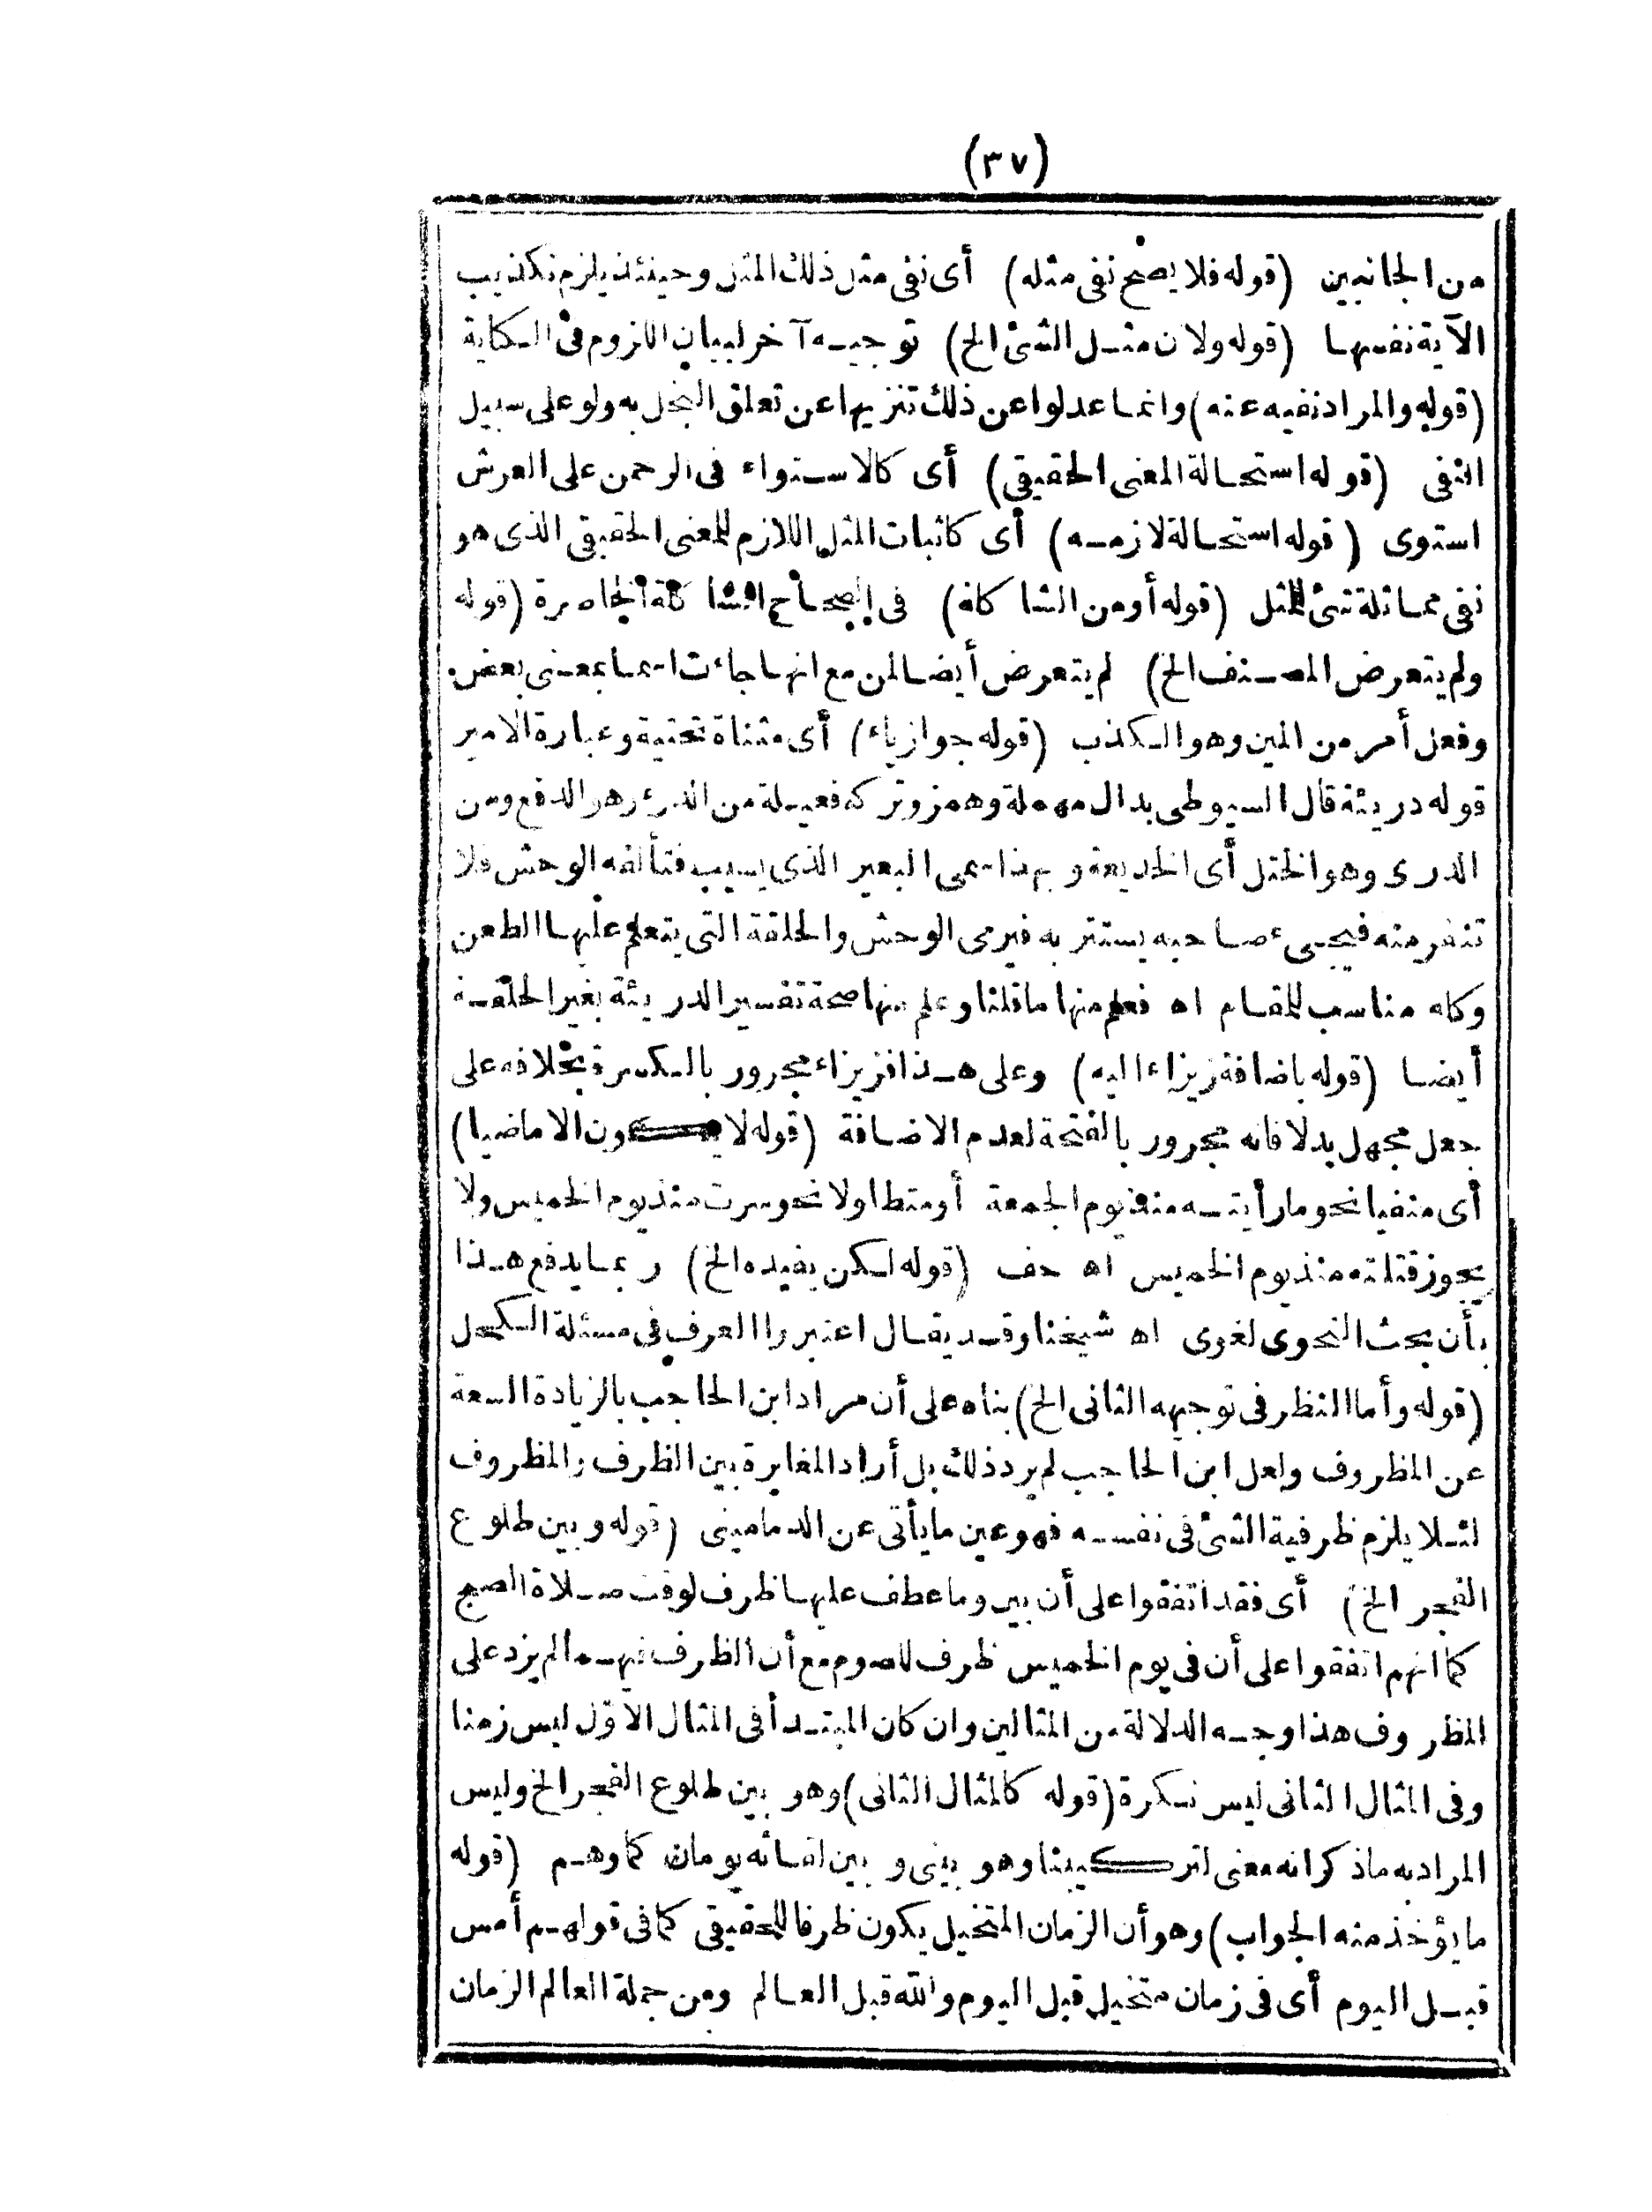 (٣٧)
من الجانبين (قوله فلا يصح نفى مثله) أى نفى مثل ذلك المثل وحينئذ يلزم تكذيب
الآية نفسها (قوله ولان مثل الشئ الخ) توجيه آخر لبيان اللزوم فى الكناية
(قوله والمراد نفيه عنه) وانما عدلوا عن ذلك تنزيها عن تعلق البخل به ولو على سبيل
النفى (قوله استحالة المعنى الحقيقى) أى كالاستواء فى الرحمن على العرش
استوى (قوله استحالة لازمه) أى كاثبات المثل اللازم للمعنى الحقيقى الذى هو
نفى مماثلة شئ للمثل (قوله أو من الشاكلة) فى الصحاح الشاكلة الخاصرة (قوله
ولم يتعرض المصنف الخ) لم يتعرض أيضا لمن مع انها جاءت اسما بمعنى بعض
وفعل أمر من المين وهو الكذب (قوله جوازياء) أى مثناة تحتية وعبارة الامير
قوله دريئة قال السيوطى بدال مهملة وهمز وتركه فعيلة من الدرء وهو الدفع ومن
الدرى وهو الختل أى الخديعة وبهذا سمى البعير الذى يسيب فتألفه الوحش فلا
تنفر منه فيجىء صاحبه يستتر به فيرمى الوحش والحلقة التى يتعلم عليها الطعن
وكله مناسب للمقام اه فعلم منها ما قلنا وعلم منها صحة تفسير الدريئة بغير الحلقة
أيضا (قوله باضافة زيزاء اليه) وعلى هذا فزيزاء مجرور بالكسرة بخلافه على
جعل مجهل بدلا فانه مجرور بالفتحة لعدم الاضافة (قوله لا يكون الا ماضيا)
أى منفيا نحو ما رأيته منذ يوم الجمعة أو متطاولا نحو سرت منذ يوم الخميس ولا
يجوز قتلته منذ يوم الخميس اه حف (قوله لكن يفيده الخ) ربما يدفع هذا
بأن بحث النحوى لغوى اه شيخنا وقد يقال اعتبروا العرف فى مسئلة الكحل
(قوله وأما النظر فى توجيهه الثانى الخ) بناه على أن مراد ابن الحاجب بالزيادة السعة
عن المظروف ولعل ابن الحاجب لم يرد ذلك بل أراد المغايرة بين الظرف والمظروف
لئلا يلزم ظرفية الشئ فى نفسه فهو عين ما يأتى عن الدمامينى (قوله وبين طلوع
الفجر الخ) أى فقد اتفقوا على أن بين وما عطف عليها ظرف لوقت صلاة الصبح
كما انهم اتفقوا على أن فى يوم الخميس ظرف للصوم مع أن الظرف فيهما لم يزد على
المظروف هذا وجه الدلالة من المثالين وان كان المبتدأ فى المثال الاول ليس زمنا
وفى المثال الثانى ليس نكرة (قوله كالمثال الثانى) وهو بين طلوع الفجر الخ وليس
المراد به ما ذكر انه معنى لتركيبنا وهو بينى وبين لقائه يومان كما وهم (قوله
ما يؤخذ منه الجواب) وهو أن الزمان المتخيل يكون ظرفا للحقيقى كما فى قولهم أمس
قبل اليوم أى فى زمان متخيل قبل اليوم والله قبل العالم ومن جملة العالم الزمان